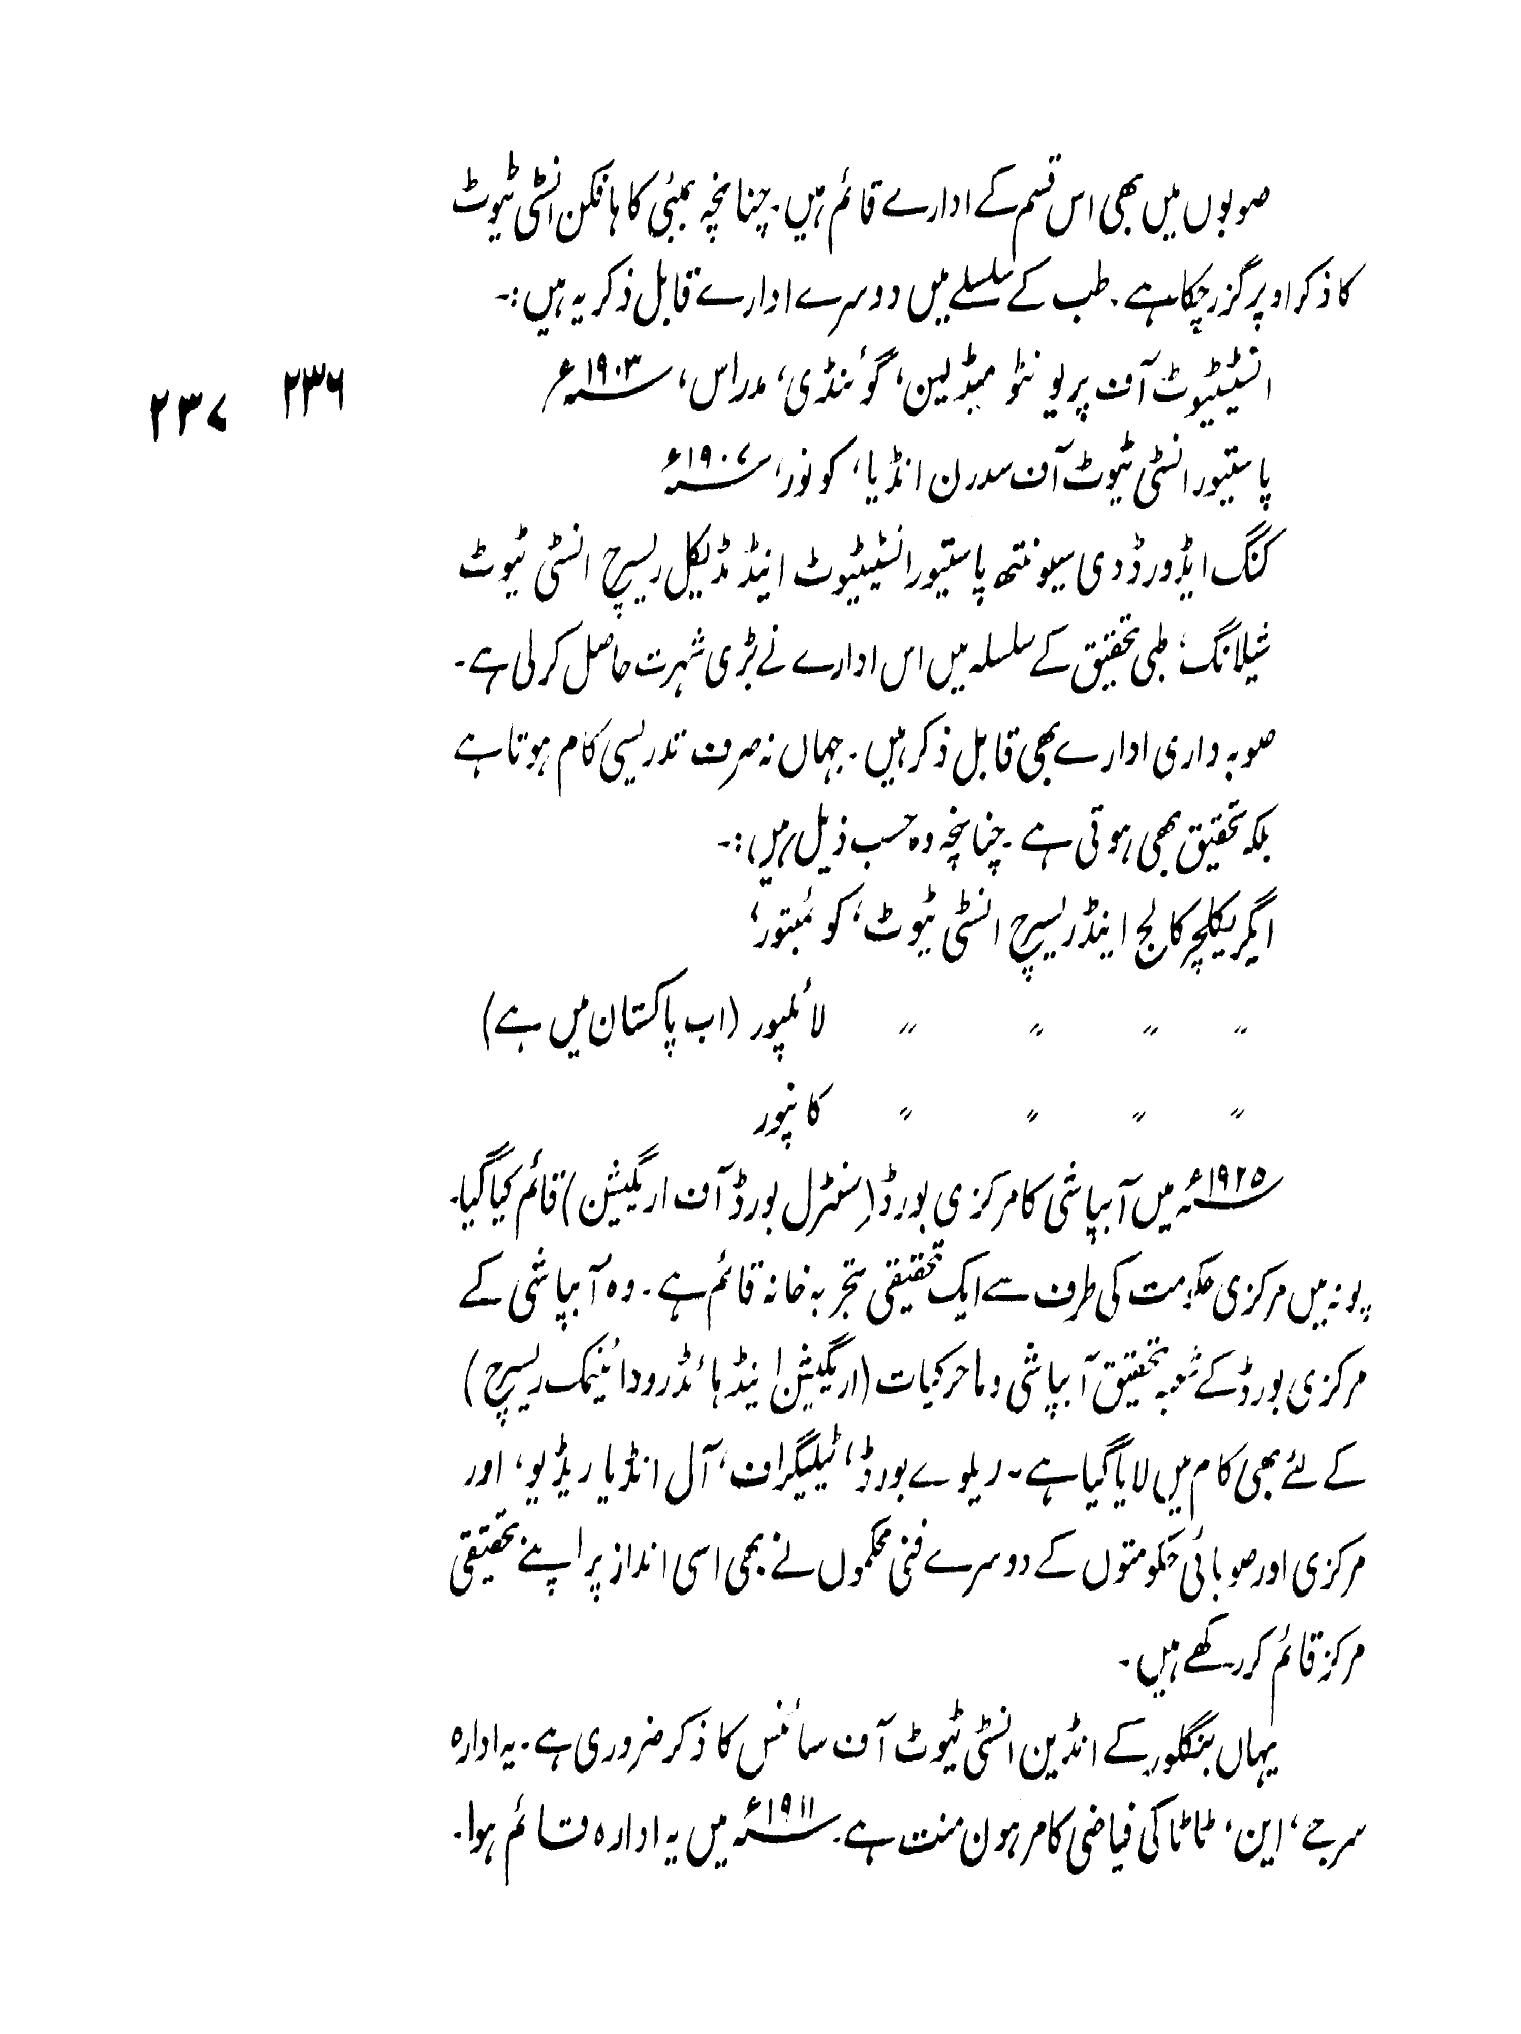 صوبوں میں بھی اس قسم کے ادارے قائم ہیں۔ چنانچہ بمبئی کا ہافکن انسٹی ٹیوٹ
کا ذکر اوپر گزر چکا ہے۔ طب کے سلسلے میں دوسرے ادارے قابل ذکر یہ ہیں:۔
انسٹیٹیوٹ آف پریونٹو میڈیسن، گوئنڈی، مدراس، ۱۹۰۳ء
۲۳۶
۲۳۷
پاستیور انسٹی ٹیوٹ آف سدرن انڈیا، کونور، ۱۹۰۷ء
کنگ ایڈورڈ دی سیونتھ پاستیور انسٹیٹیوٹ اینڈ مڈیکل ریسرچ انسٹی ٹیوٹ
شیلانگ، طبی تحقیق کے سلسلہ میں اس ادارے نے بڑی شہرت حاصل کر لی ہے۔
صوبہ داری ادارے بھی قابل ذکر ہیں۔ جہاں نہ صرف تدریسی کام ہوتا ہے
بلکہ تحقیق بھی ہوتی ہے۔ چنانچہ وہ حسب ذیل ہیں:۔
ایگریکلچر کالج اینڈ ریسرچ انسٹی ٹیوٹ، کوئمبتور،
〃 〃 〃 〃 لائلپور (اب پاکستان میں ہے)
〃 〃 〃 〃 کانپور
۱۹۲۵ء میں آبپاشی کا مرکزی بورڈ (سنٹرل بورڈ آف اریگیشن) قائم کیا گیا۔
پونہ میں مرکزی حکومت کی طرف سے ایک تحقیقی تجربہ خانہ قائم ہے۔ وہ آبپاشی کے
مرکزی بورڈ کے شعبہ تحقیق آبپاشی و ماحرکیات (اریگیشن اینڈ ہائڈروڈائنیمک ریسرچ)
کے لئے بھی کام میں لایا گیا ہے۔ ریلوے بورڈ، ٹیلیگراف، آل انڈیا ریڈیو، اور
مرکزی اور صوبائی حکومتوں کے دوسرے فنی محکموں نے بھی اسی انداز پر اپنے تحقیقی
مرکز قائم کر رکھے ہیں۔
یہاں بنگلور کے انڈین انسٹی ٹیوٹ آف سائنس کا ذکر ضروری ہے۔ یہ ادارہ
سر جے، این، ٹاٹا کی فیاضی کا مرہون منت ہے۔ ۱۹۱۱ء میں یہ ادارہ قائم ہوا۔